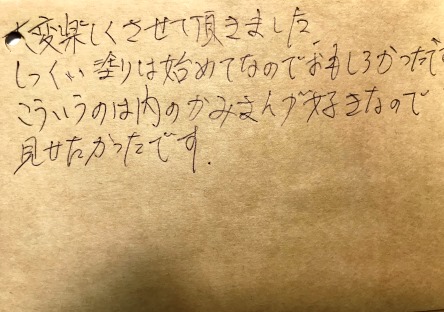 大変楽しくさせて頂きました
しっくい塗りは始めてなのでおもしろかったです
こういうのは内のかみさんが好きなので
見せたかったです.